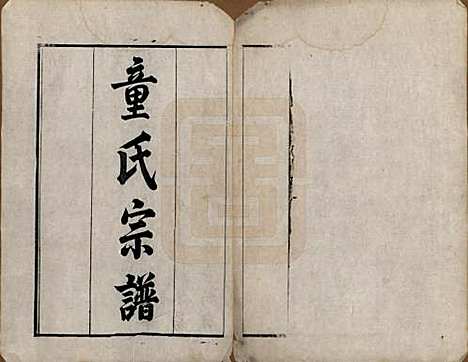 童氏宗譜